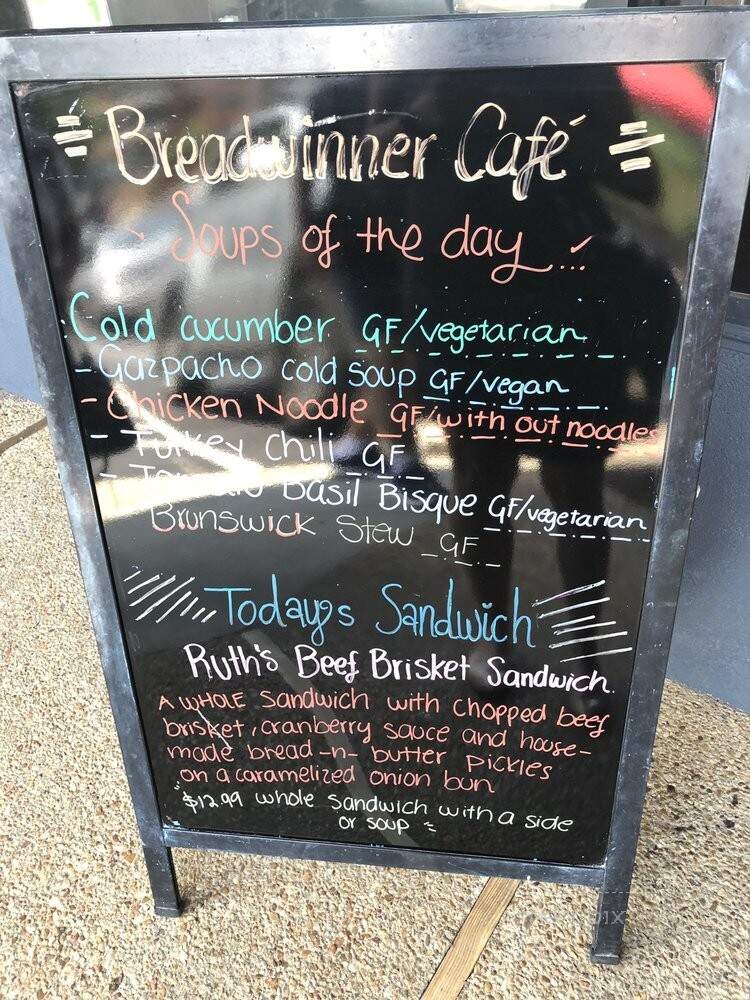 Breadwinner Café
Soups of the day...
Cold cucumber GF/vegetarian
- Gazpacho cold soup GF/vegan
- Chicken Noodle GF/with out noodles
- Turkey Chili GF
- Tomato Basil Bisque GF/vegetarian
Brunswick Stew GF
Today's Sandwich
Ruth's Beef Brisket Sandwich.
A WHOLE Sandwich with chopped beef
brisket, cranberry sauce and house-
made bread-n-butter pickles
on a caramelized onion bun
$12.99 whole sandwich with a side
or soup